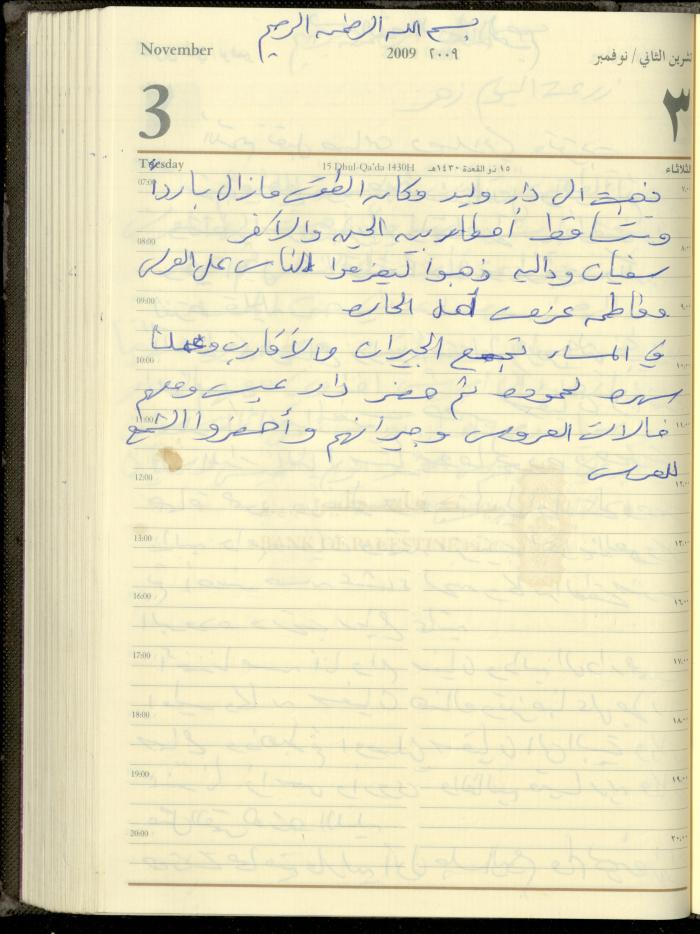 بسم الله الرحمن الرحيم
November 2009 ٢٠٠٩ تشرين الثاني / نوفمبر
3 ٣
Tuesday 15 Dhul-Qa'da 1430H ١٥ ذو القعدة ١٤٣٠هـ الثلاثاء
07:00 ذهبت الى دار وليد وكان الطقس مازال بارداً
وتتساقط أمطار بين الحين والآخر
08:00
سفيان وداليه ذهبوا ليعزموا الناس على العرس
09:00 وفاطمه عزمت أهل الحاره
في المساء تجمع الجيران والأقارب وعملنا
10:00 ١٠:٠٠
سهره لحموده ثم حضر دار عيسى ومعهم
11:00 ١١:٠٠
خالات العروس وجيرانهم وأحضروا الشمع
للعرس
12:00 ١٢:٠٠
13:00 ١٣:٠٠
BANK OF PALESTINE
16:00 ١٦:٠٠
17:00 ١٧:٠٠
18:00 ١٨:٠٠
19:00 ١٩:٠٠
20:00 ٢٠:٠٠